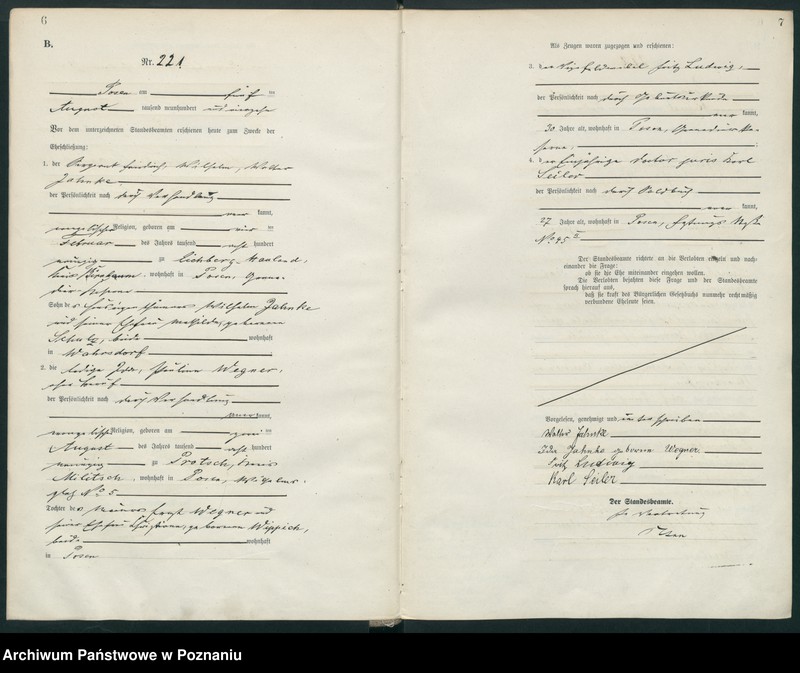 6
B.
Nr. 221
Posen am fünf ten
August tausend neunhundert und vierzehn
Vor dem unterzeichneten Standesbeamten erschienen heute zum Zwecke der
Eheschließung:
1. der Sergeant Friedrich, Wilhelm, Walter
Jahnke
der Persönlichkeit nach durch Verhandlung
aner kannt,
evangelischer Religion, geboren am vier ten
Februar des Jahres tausend acht hundert
neunzig zu
Kreis wohnhaft in Posen,
Sohn des Wilhelm Jahnke
und seiner Ehefrau Mathilde, geborenen
Schulz, beide wohnhaft
in Wahrsdorf
2. die ledige Ida, Pauline Wegner,
ohne Beruf
der Persönlichkeit nach durch Verhandlung
aner kannt,
evangelischer Religion, geboren am zwei ten
August des Jahres tausend acht hundert
neunzig zu Protsch, Kreis
Militsch, wohnhaft in Posen, Wilhelms-
platz No 5
Tochter des Ernst Wegner und
seiner Ehefrau geborenen Wippich,
beide wohnhaft
in Posen
7
Als Zeugen waren zugezogen und erschienen:
3. der Vizefeldwebel Fritz Ludwig,
der Persönlichkeit nach durch
aner kannt,
30 Jahre alt, wohnhaft in Posen, Grenadierka-
serne,
4. der Einjährige Doctor juris Karl
Seiler
der Persönlichkeit nach durch Soldbuch
aner kannt,
27 Jahre alt, wohnhaft in Posen,
No 45
Der Standesbeamte richtete an die Verlobten einzeln und nach-
einander die Frage:
ob sie die Ehe miteinander eingehen wollen.
Die Verlobten bejahten diese Frage und der Standesbeamte
sprach hierauf aus,
daß sie kraft des Bürgerlichen Gesetzbuchs nunmehr rechtmäßig
verbundene Eheleute seien.
Vorgelesen, genehmigt und unterschrieben
Walter Jahnke
Ida Jahnke geborene Wegner
Fritz Ludwig
Karl Seiler
Der Standesbeamte.
In Vertretung
Archiwum Państwowe w Poznaniu